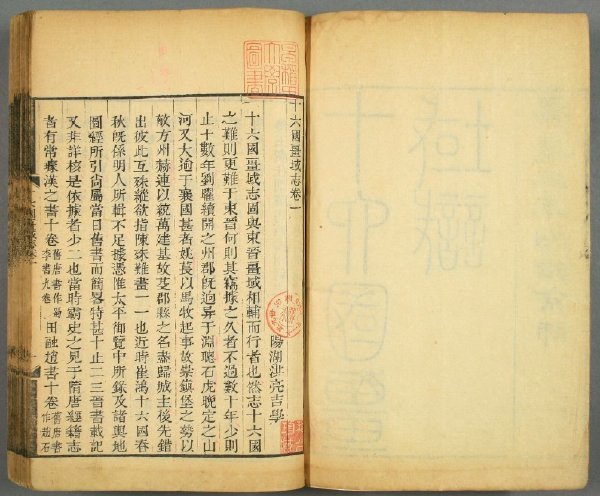 十六國疆域志卷一
陽湖洪亮吉學
十六國疆域志國與東晉疆域相輔而行者也然志十六國
之難則更難于東晉何則其竊據之久者不過數十年少則
止十數年劉曜續開之州郡既迥异于淵聰石虎晚定之山
河又大逾于襄國甚者姚萇以馬牧起事故崇鎮堡之勢以
敵方州赫連以統萬建基故芟郡縣之名蒸歸城主後先錯
出彼此互殊縱欲指陳殊難畫一一也近時崔鴻十六國春
秋既係明人所輯不足據憑惟太平御覽中所錄及諸輿地
圖經所引尙屬當日舊書而簡畧特甚十止二三晉書載記
又非詳核是依據者少二也當時霸史之見于隋唐經籍志
者有常璩漢之書十卷 舊唐書作蜀李書九卷 田融趙書十卷 舊唐書作趙石